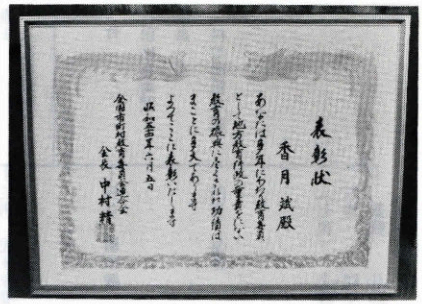 表彰状
香月 誠殿
あなたは多年にわたり教育委員
として地方教育行政の重責をにない
教育の振興に尽くされた功績は
まことに多大であります
よつてここに表彰いたします
昭和五十四年六月五日
全国市町村教育委員会連合会
会長 中村